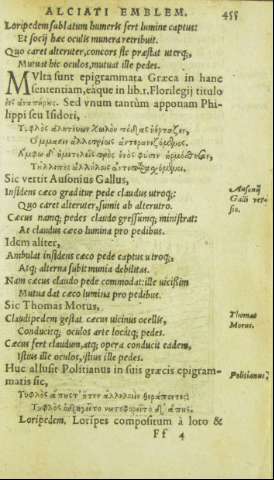 ALCIATI EMBLEM. 455
Loripedem sublatum humeris fert lumine captus:
Et socij hæc oculis munera retribuit.
Quo caret alteruter, concors sic præstat uterq;,
Mutuat hic oculos, mutuat ille pedes.
MVlta sunt epigrammata Græca in hanc
sententiam, eaque in lib. 1. Florilegij titulo
Sed vnum tantùm apponam Phi-
lippi seu Isidori,
Sic vertit Ausonius Gallus,
Insidens cæco graditur pede claudus utroq;:
Quo caret alteruter, sumit ab alterutro.
Cæcus namq; pedes claudo gressumq; ministrat:
At claudus cæco lumina pro pedibus.
Idem aliter,
Ambulat insidens cæco pede captus utroq;,
Atq; alterna subit munia debilitas.
Nam cæcus claudo pede commodat: ille uicissim
Mutua dat cæco lumina pro pedibus.
Sic Thomas Morus,
Claudipedem gestat cæcus uicinus ocellis,
Conducitq; oculos arte locatq; pedes.
Cæcus fert claudum, atq; opera conducit eadem,
istius ille oculos, istius ille pedes.
Huc allusit Politianus in suis græcis epigram-
matis sic,
Loripedem. Loripes compositum à loro &
Ff 4
Ausonij
Galli ver-
sio.
Thomas
Morus.
Politianus.